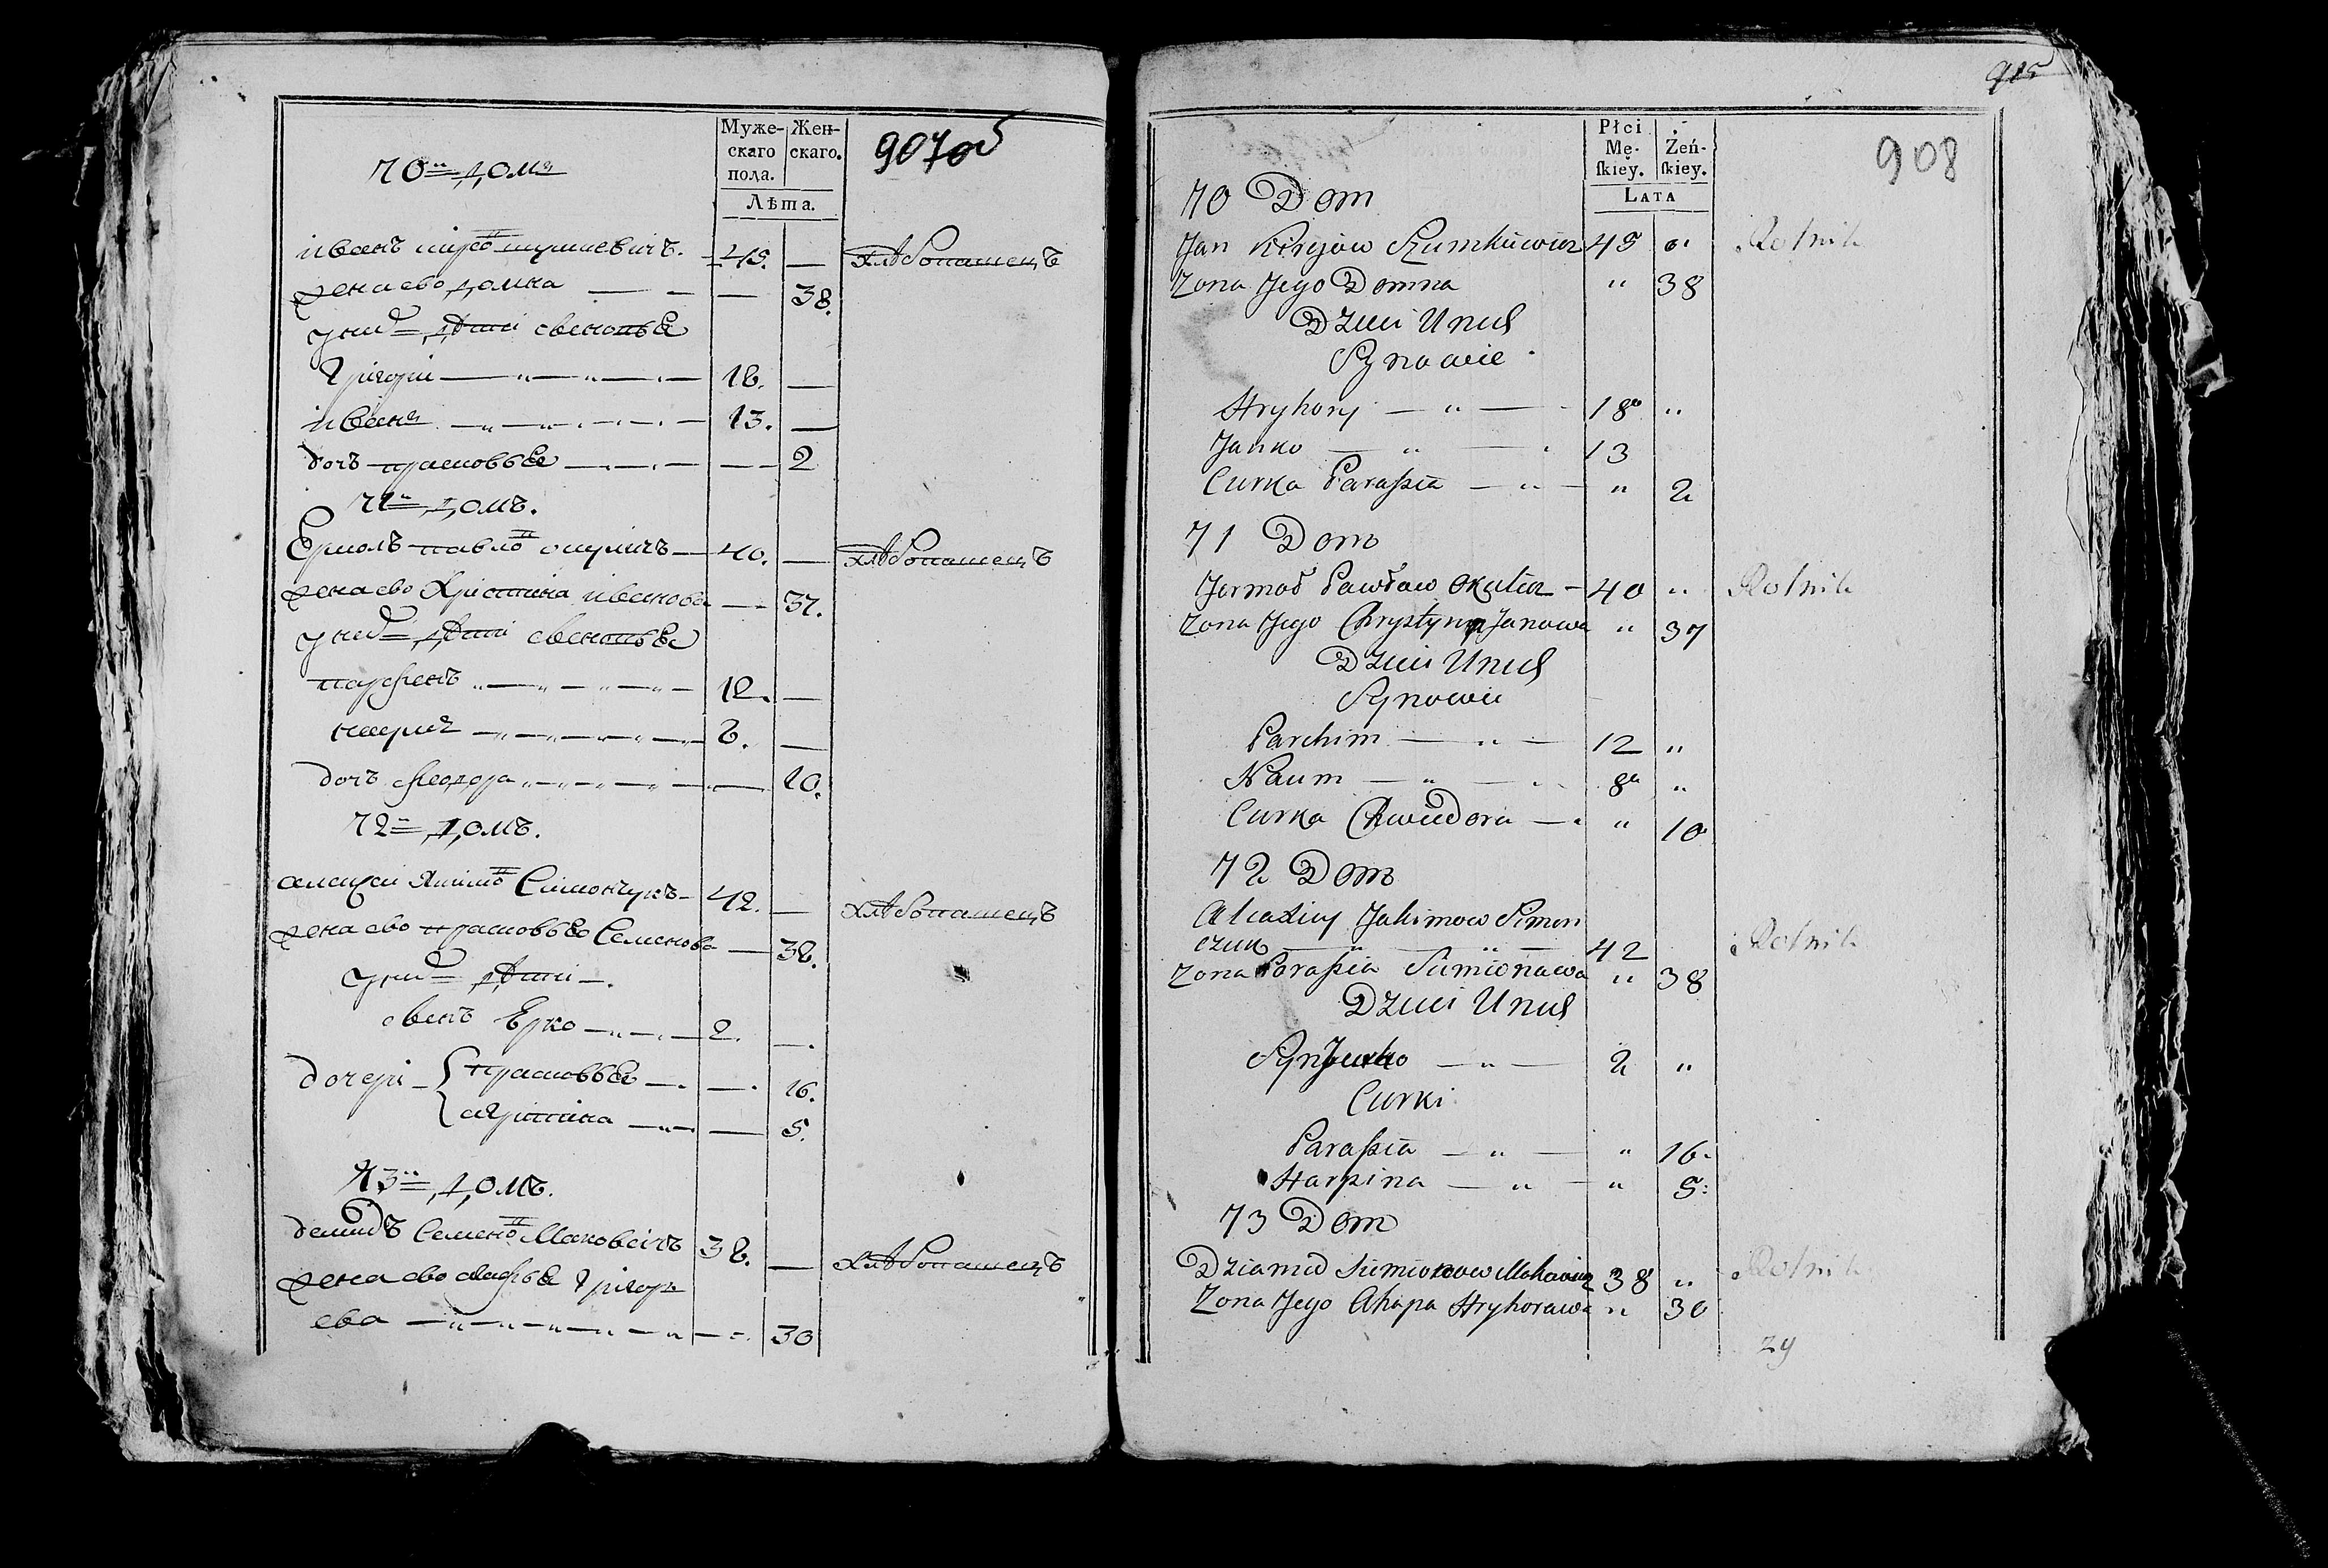 Муже-
скаго
пола.
Жен-
скаго.
Лѣта.
907 об
70й домъ
иванъ шумкевичъ. 45. — хлѣбопашецъ
жена ево домна — — — 38.
у них дети
григори — „ — „ — 18. —
иванъ — „ — „ — 13. —
доч прасковья — — — 2
71й домъ.
Ермолъ павло окуличъ — 40. — хлѣбопашецъ
жена ево Христина иванова — 37.
у них дети
парфенъ „ — „ — 12. —
наумъ — „ — „ — 8. —
дочъ феодора „ — „ — 10.
72й домъ.
алексей Якимо Симончукъ — 42. — хлѣбопашецъ
жена ево прасковья Семенова — 38.
у них дети —.
Юрко — „ — 2. —.
дочери { прасковья — — 16.
агрипина — „ — 5.
73й домъ.
демидъ Семено Маковичъ 38. — хлѣбопашецъ
жена ево агафья григорь
ева — „ — „ — 30
915
908
Płci
Mę-
skiey.
Żeń-
skiey.
LATA
70 Dom
Jan Szumkiewicz 45 „ Rolnik
Zona Jego Domna „ 38
Dzieci Unich
Synowie
Hryhory — „ — 18 „
Janko — „ — 13
Curka Paraßia — „ — „ 2
71 Dom
Jermoł Pawław Okulicz — 40 „ Rolnik
Zona Jego Chrystyna Janowa „ 37
Dzieci Unich
Synowie
Parchim — „ — 12 „
Naum — „ — 8 „
Curka Chwiedora — „ 10
72 Dom
Jakimow Simon
czuk — „ — „ — 42 Rolnik
Zona Paraßia Simionawa „ 38
Dzieci Unich
Syn Jurko — „ — 2 „
Curki
Paraßia — „ — „ 16
Harpina — „ — „ 5
73 Dom
Dziamid Simionow Makowicz 38 „ Rolnik
Zona Jego Ahapa Hryhorawa „ 30
zy